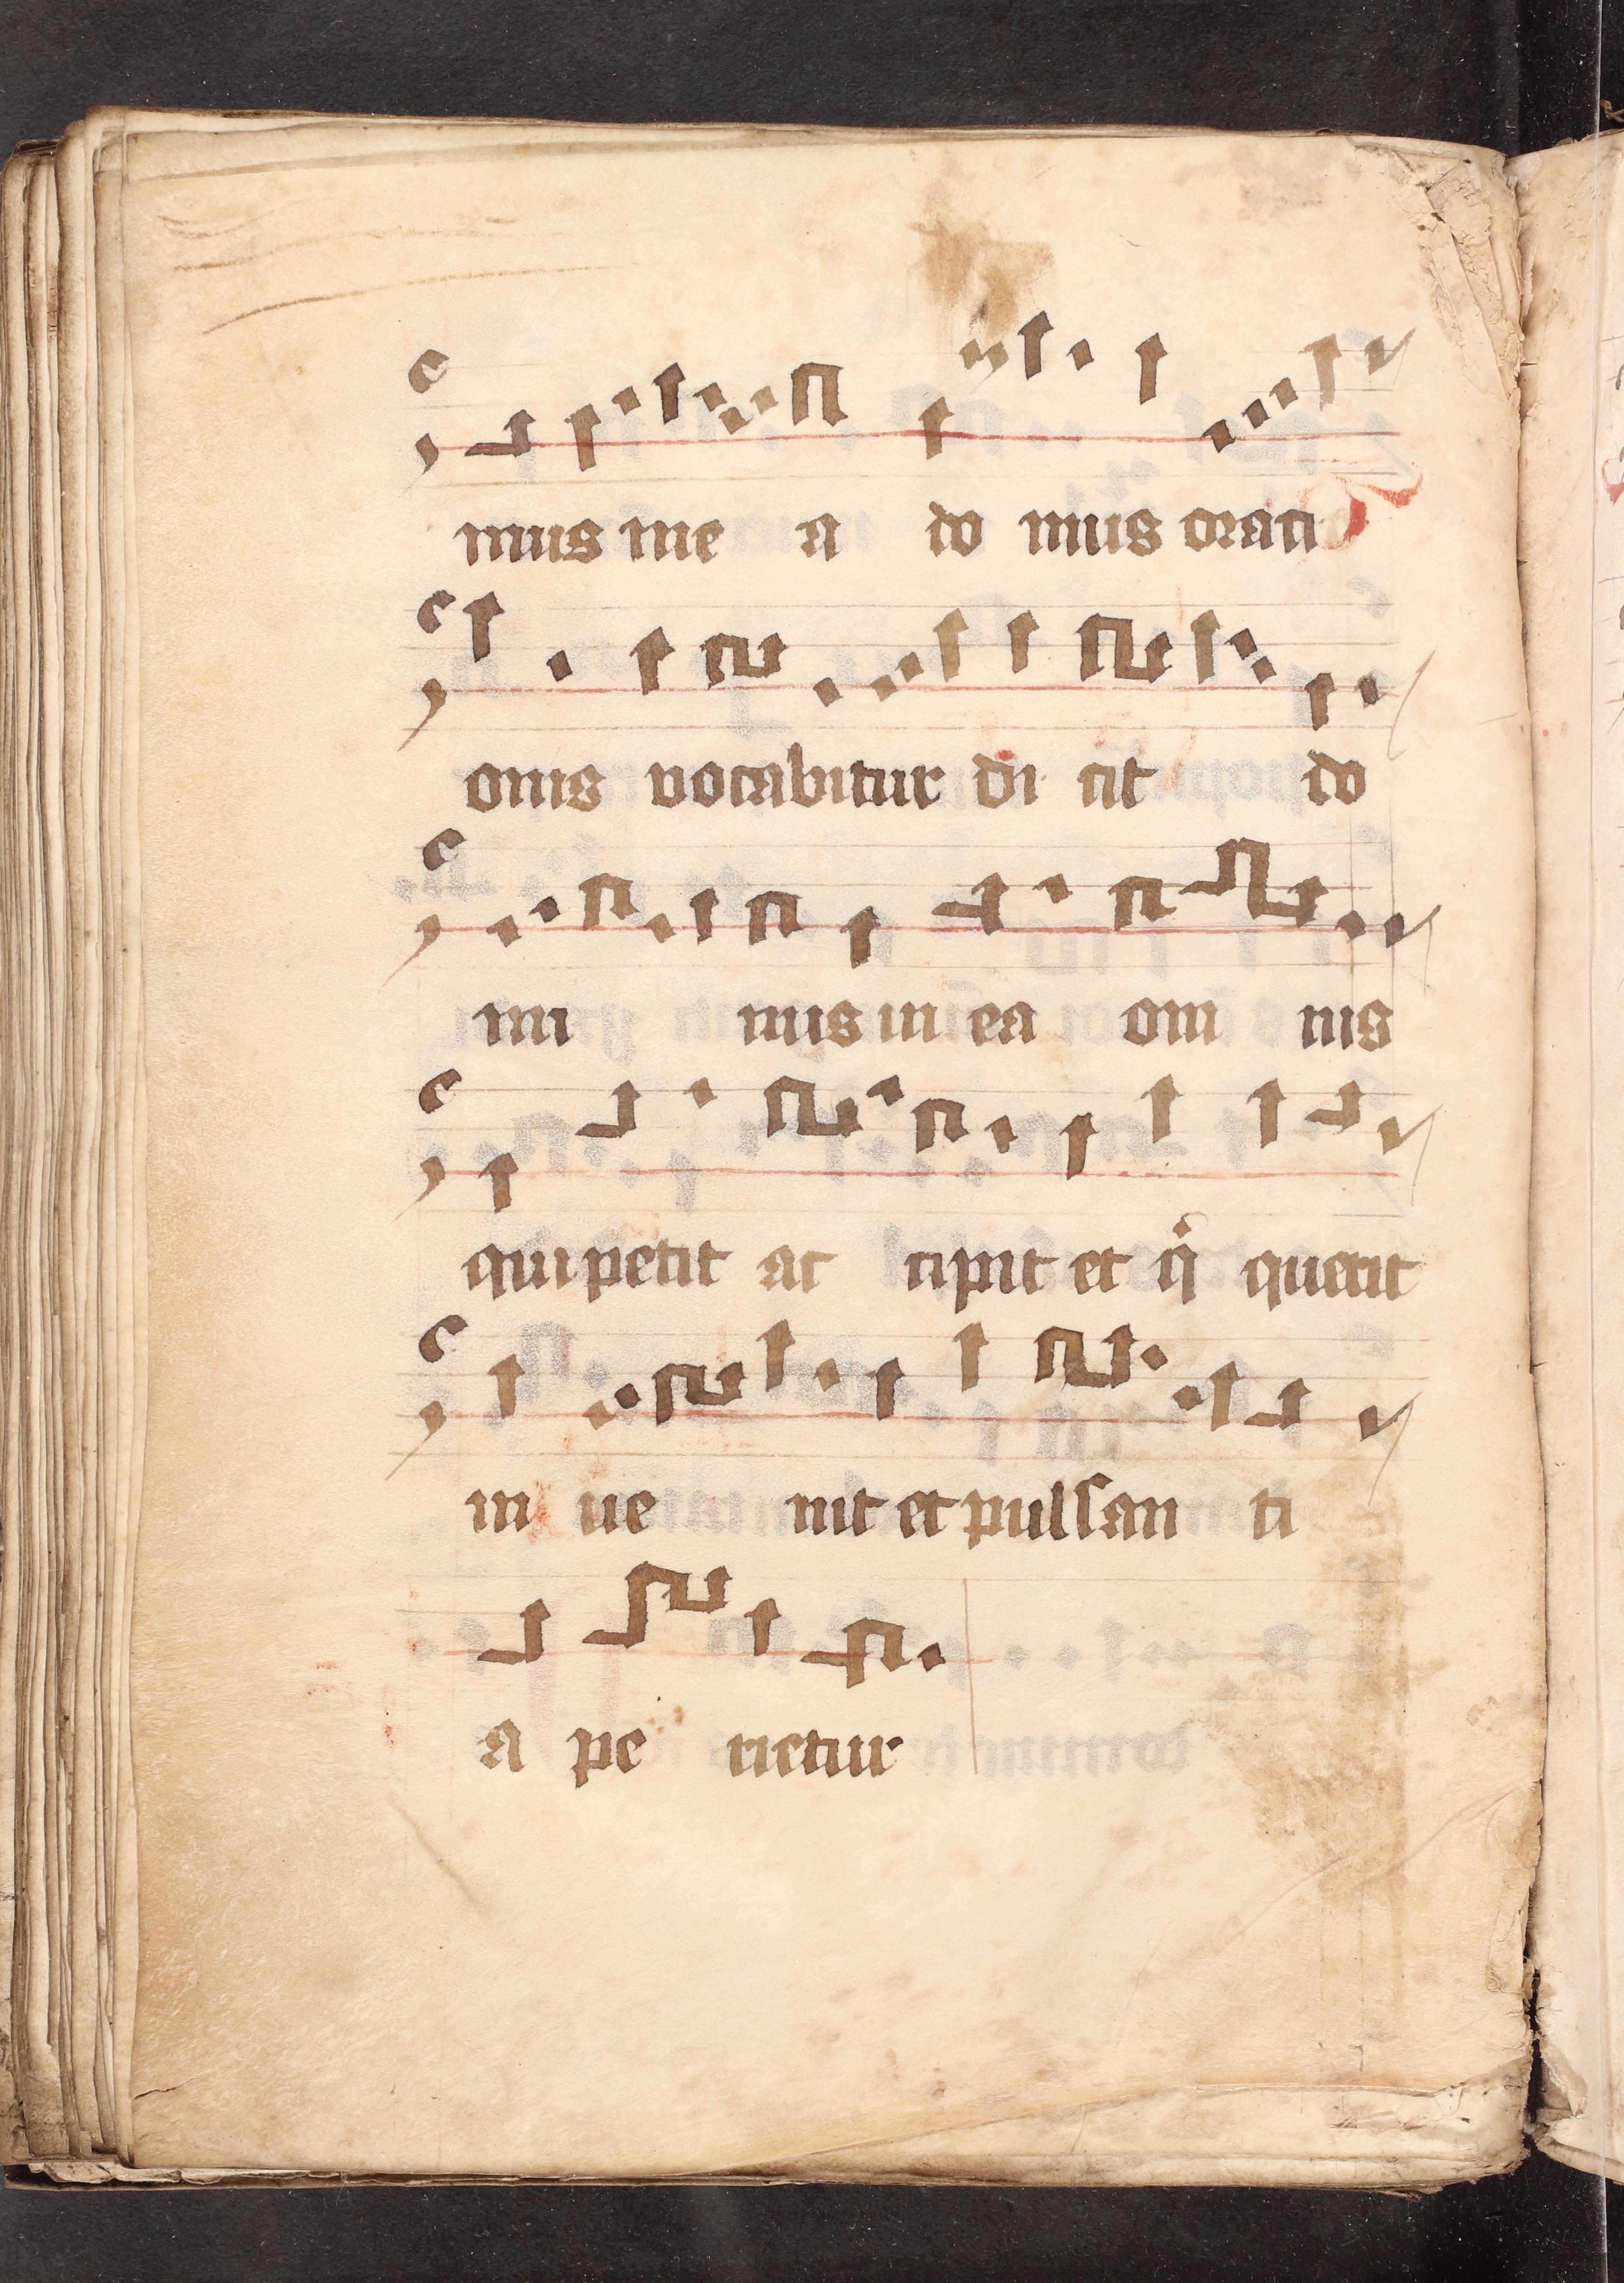 mus me a do mus orati
onis vocabitur di cit do
mi nus in ea om nis
qui petit ac cipit et qͥ querit
in ue nit et pulſan ti
a pe rietur